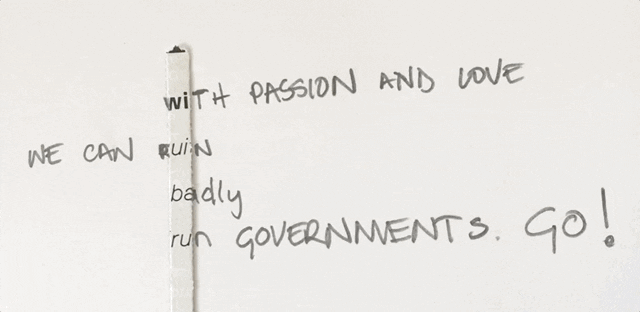 wiTH PASSION AND LOVE
WE CAN RuiN
badly
run GOVERNMENTS. GO!